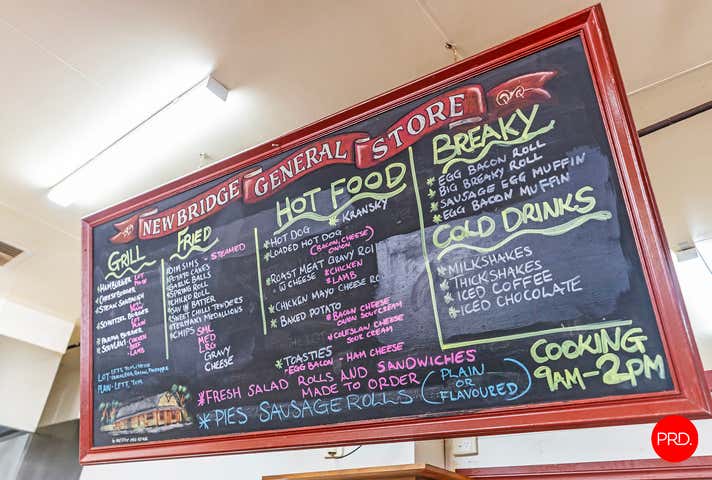 NEWBRIDGE GENERAL STORE
GRILL
*HAMBURGER LOT PLAIN
*CHEESEBURGER
*STEAK SANDWICH LOT PLAIN
*SCHNITZEL BURGER LOT PLAIN
*PARMA BURGER
*SOUVLAKI CHICKEN
BEEF
LAMB
PLAIN-LETT, TOM
FRIED
*DIM SIMS - STEAMED
*POTATO CAKES
*GARLIC BALLS
*SPRING ROLL
*CHIKO ROLL
*SAV IN BATTER
*SWEET CHILLI TENDERS
*TERIYAKI MEDALLIONS
*CHIPS SML
MED
LRG
GRAVY
CHEESE
HOT FOOD
*HOT DOG *KRANSKY
*LOADED HOT DOG
(BACON, CHEESE
ONION
*ROAST MEAT GRAVY ROLL
W CHEESE *CHICKEN
*LAMB
*CHICKEN MAYO CHEESE RO
*BAKED POTATO
*BACON CHEESE
ONION SOUR CREAM
*COLESLAW CHEESE
SOUR CREAM
*TOASTIES
-EGG BACON - HAM CHEESE
BREAKY
*EGG BACON ROLL
*BIG BREAKY ROLL
*SAUSAGE EGG MUFFIN
*EGG BACON MUFFIN
COLD DRINKS
*MILKSHAKES
*THICKSHAKES
*ICED COFFEE
*ICED CHOCOLATE
*FRESH SALAD ROLLS AND SANDWICHES
MADE TO ORDER
*PIES SAUSAGE ROLLS (PLAIN
OR
FLAVOURED)
COOKING
9AM-2PM
PRD.